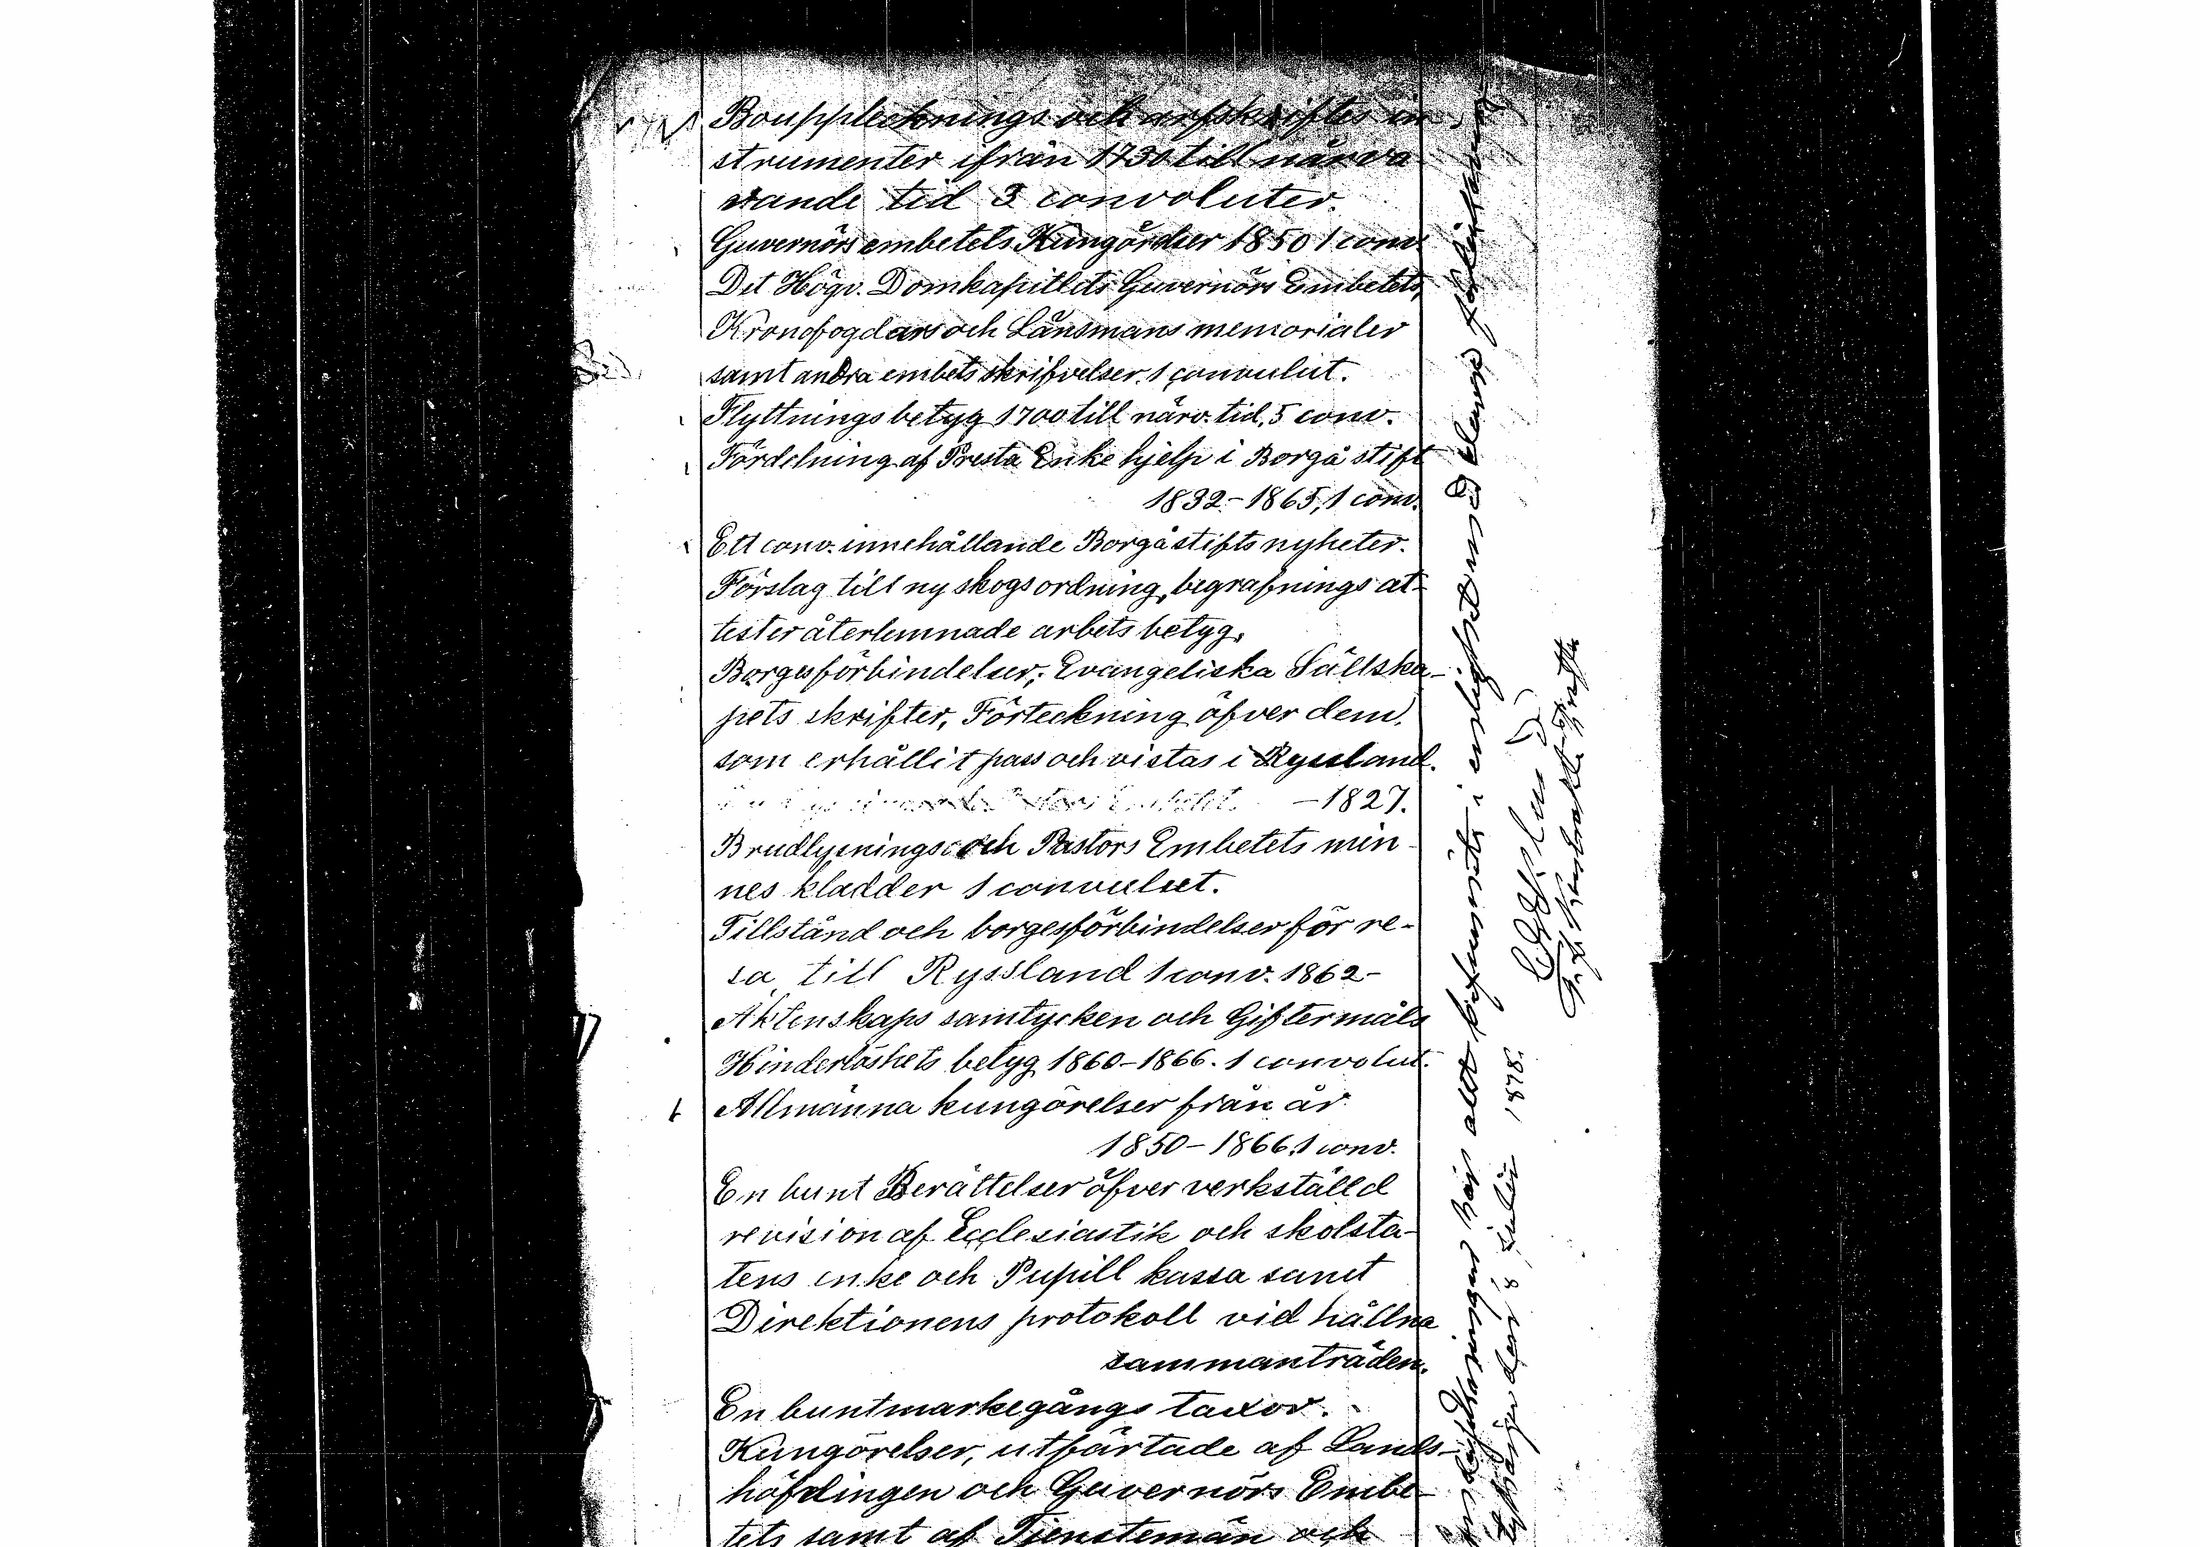 Bouppteknings och arfskiftes in
strumenter ifrån 1730 till närva
rande tid 3 convoluter.
Guvernörs embetets Kungörelser 1850 1 conv.
Det Högv. Domkapitlets Guvernörs Embetets,
Kronofogdars och Länsmans memorialer
samt andra embets skrifvelser. 1 convulut.
Flyttnings betyg 1700 till närv. tid, 5 conv.
Fördelning af Presta Enke hjelp i Borgå stift
1832-1865, 1 conv.
Ett conv. innehållande Borgå stifts nyheter.
Förslag till ny skogsordning, begrafnings at-
tester återlemnade arbets betyg.
Borgesförbindelser, Evangeliska Sällska-
pets skrifter, Förteckning öfver dem,
som erhållit pass och vistas i Ryssland.
-1827.
Brudlysnings och Pastors Embetets min
nes kladder 1 convulut.
Tillstånd och borgesförbindelser för re-
sa till Ryssland 1 conv. 1862-
Aktenskaps samtycken och Giftermåls
Hinderlöshets betyg 1860-1866. 1 convolut.
Allmänna kungörelser från år
1850-1866, 1 conv.
En bunt Berättelser öfver verkställd
revision af Ecclesiastik och skolsta-
tens enke och Pupill kassa samt
Direktionens protokoll vid hållna
sammanträden.
En bunt markegångs taxor.
Kungörelser, utfärtade af Lands-
höfdingen och Guvernörs Embe-
tets samt af Tjenstemän och
här allt befunnits i enlighet
den 8 1878.